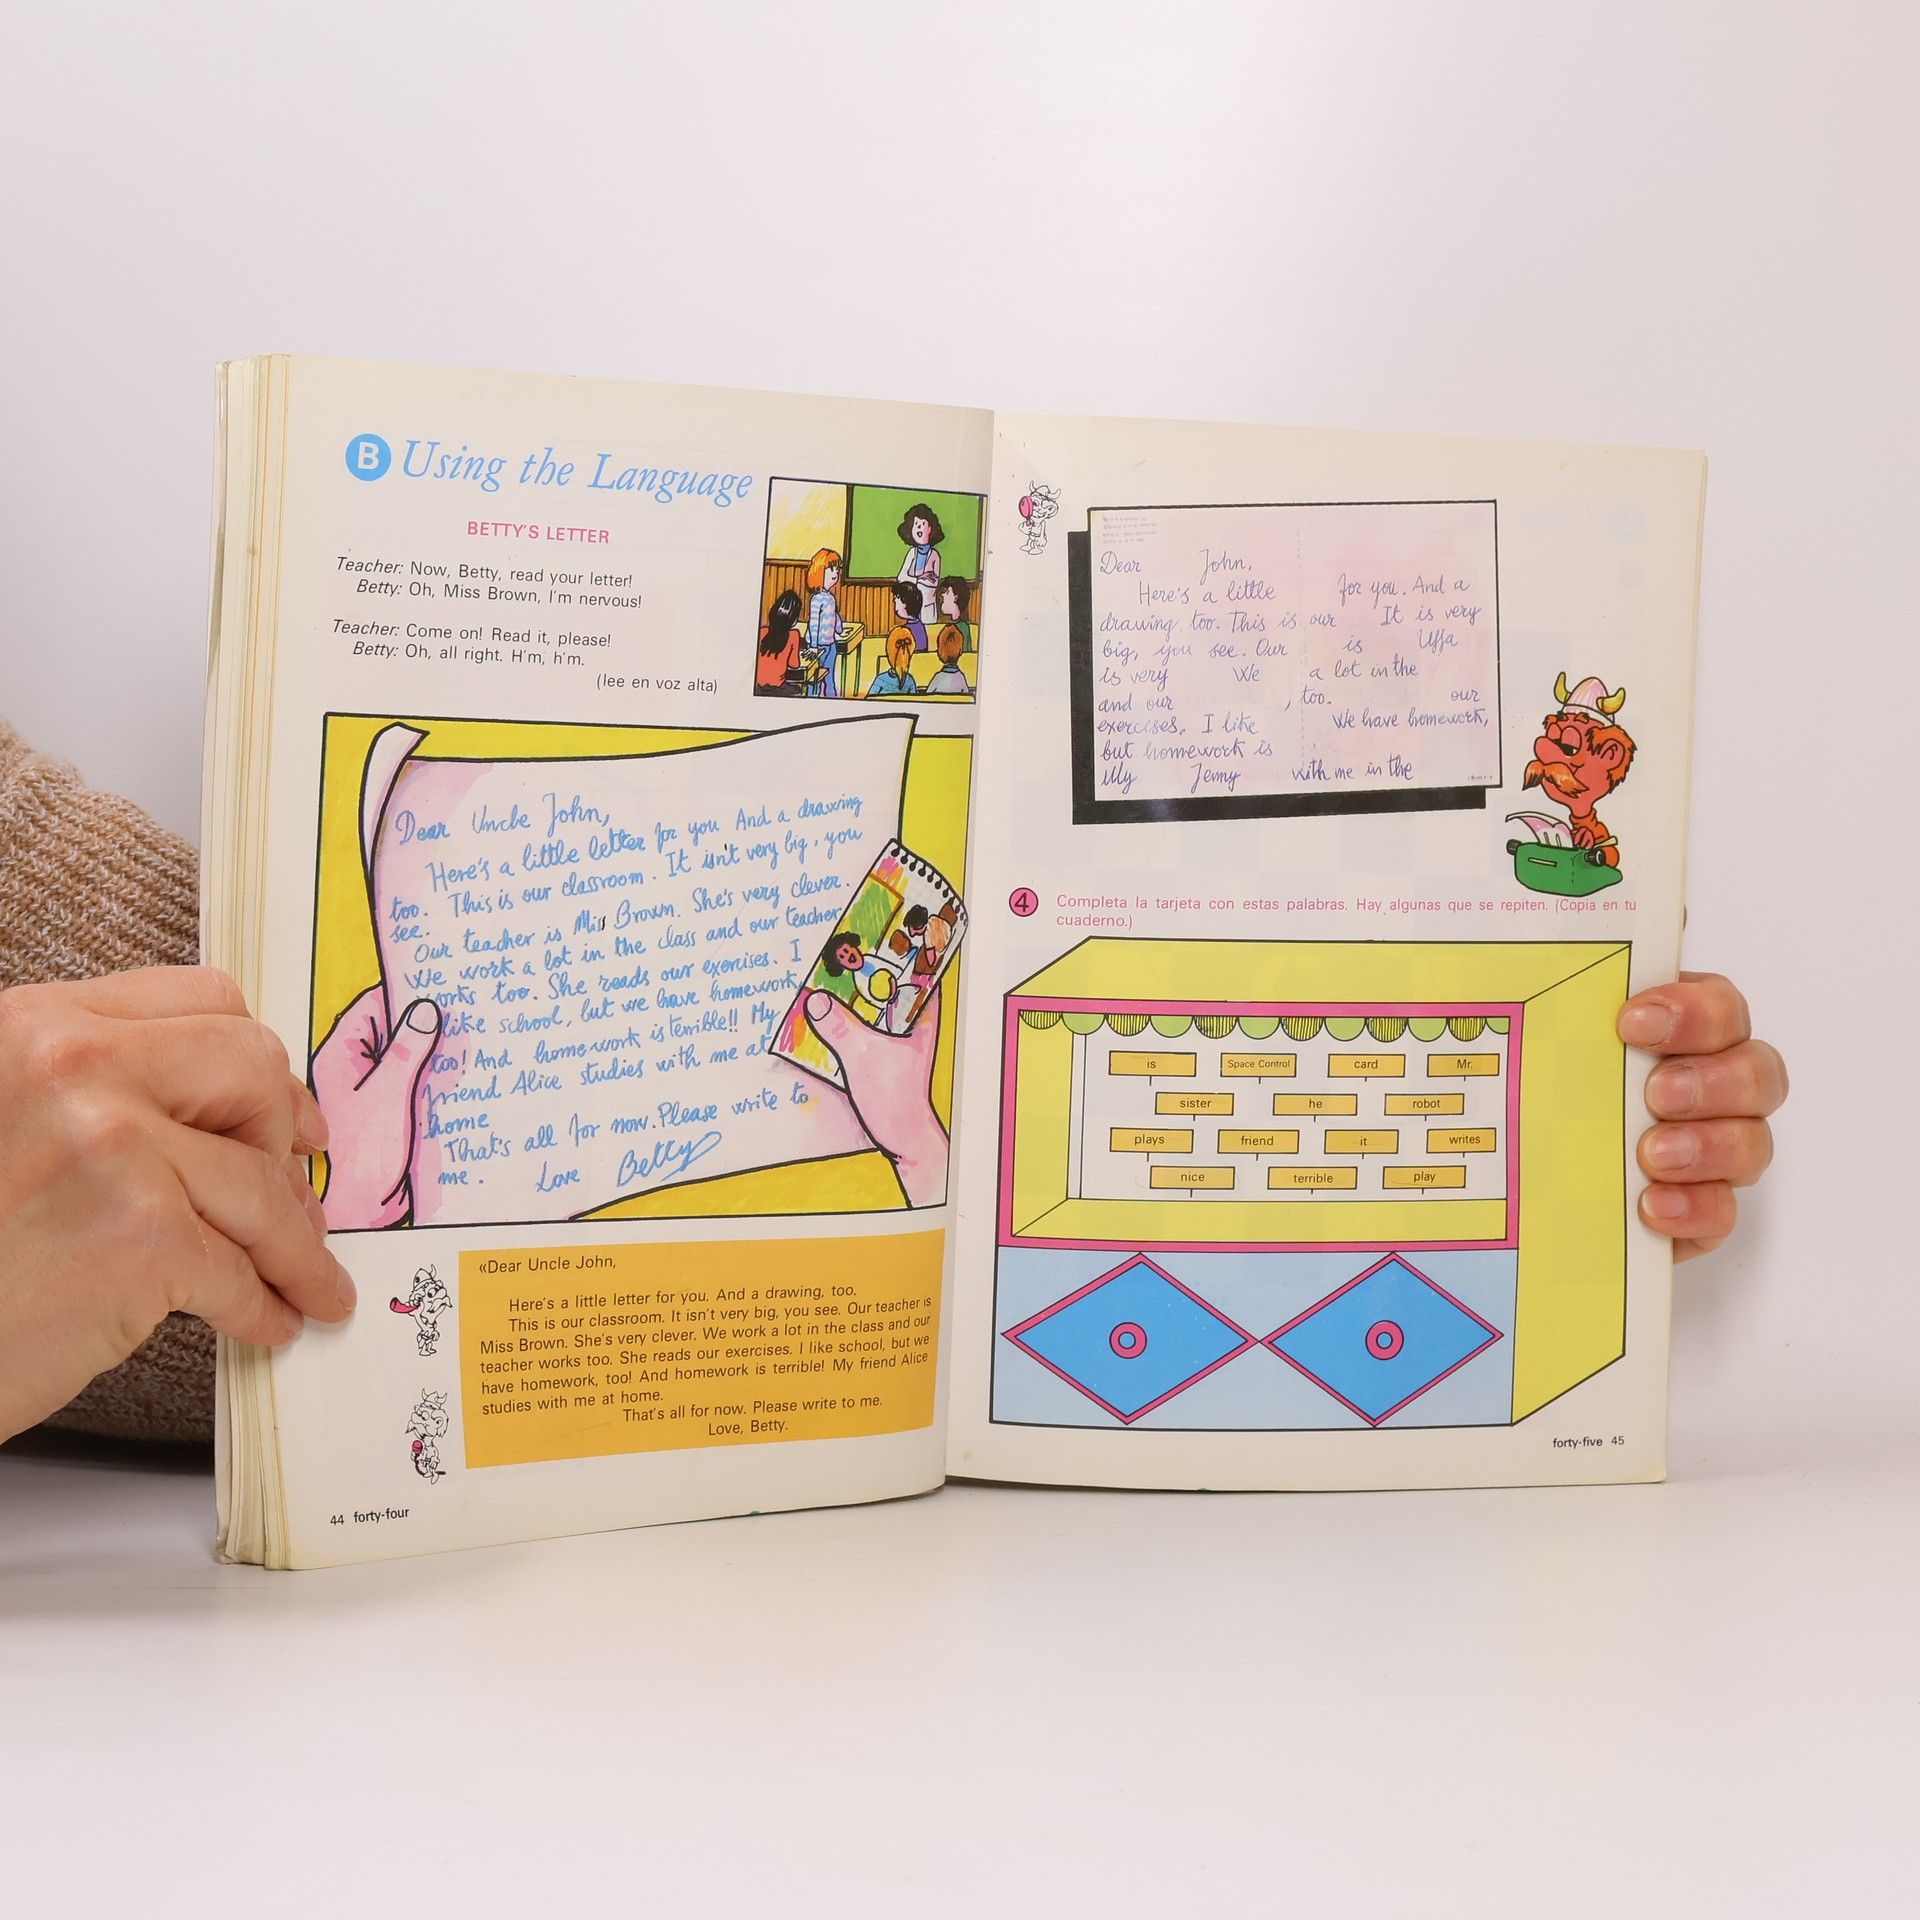 B Using the Language
BETTY'S LETTER
Teacher: Now, Betty, read your letter!
Betty: Oh, Miss Brown, I'm nervous!
Teacher: Come on! Read it, please!
Betty: Oh, all right. H'm, h'm.
(lee en voz alta)
Dear Uncle John,
Here's a little letter for you. And a drawing
too. This is our classroom. It isn't very big, you
see.
Our teacher is Miss Brown. She's very clever.
We work a lot in the class and our teacher
works too. She reads our exercises. I
like school, but we have homework,
too! And homework is terrible!! My
friend Alice studies with me at
home
That's all for now. Please write to
me. Love Betty
«Dear Uncle John,
Here's a little letter for you. And a drawing, too.
This is our classroom. It isn't very big, you see. Our teacher is
Miss Brown. She's very clever. We work a lot in the class and our
teacher works too. She reads our exercises. I like school, but we
have homework, too! And homework is terrible! My friend Alice
studies with me at home.
That's all for now. Please write to me.
Love, Betty.
44 forty-four
Dear John,
Here's a little for you. And a
drawing, too. This is our It is very
big, you see. Our is Uffa
is very We a lot in the
and our , too. our
exercises. I like We have homework,
but homework is
My Jenny with me in the
4 Completa la tarjeta con estas palabras. Hay algunas que se repiten. (Copia en tu
cuaderno.)
is Space Control card Mr.
sister he robot
plays friend it writes
nice terrible play
forty-five 45